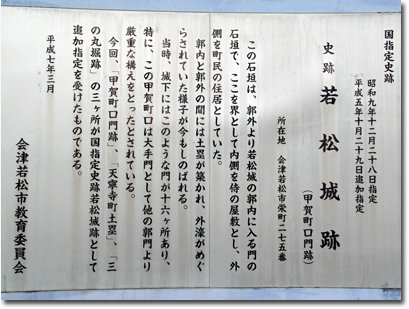 国指定史跡
昭和九年十二月二十八日指定
平成五年十月二十九日追加指定
史跡 若松城跡
(甲賀町口門跡)
所在地 会津若松市栄町二七五番
この石垣は、郭外より若松城の郭内に入る門の
石垣で、ここを界として内側を侍の屋敷とし、外
側を町民の住居としていた。
郭内と郭外の間には土塁が築かれ、外濠がめぐ
らされていた様子が今もしのばれる。
当時、城下にはこのような門が十六ヶ所あり、
特に、この甲賀町口は大手門として他の郭門より
厳重な構えをとったとされている。
今回、「甲賀町口門跡」、「天寧寺町土塁」、「三
の丸堀跡」の三ヶ所が国指定史跡若松城跡として
追加指定を受けたものである。
平成七年三月
会津若松市教育委員会